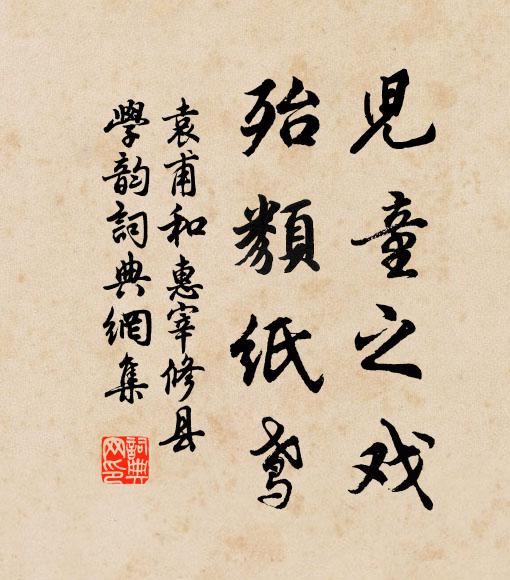 兒童之戏
殆類紙鸢
袁甫和惠宰修县
學韵詞典網集
詞典
网印